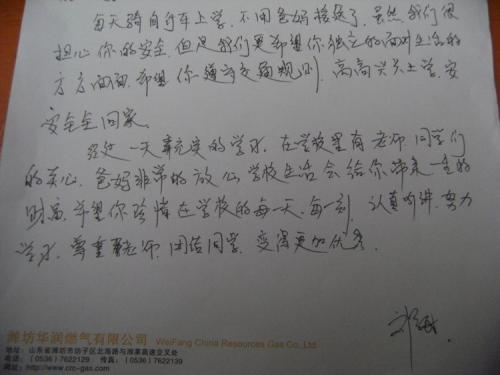 每天骑自行车上学,不用爸妈接送了,虽然我们很
担心你的安全,但是我们更希望你独立的面对生活的
方方面面,希望你遵守交通规则,高高兴兴上学,安
安全全回家。
经过一天紧张的学习,在学校里有老师同学们
的关心,爸妈非常的放心,学校生活会给你带来一生的
财富,希望你珍惜在学校的每一天、每一刻,认真听讲、努力
学习、尊重老师、团结同学,变得更加优秀。
潍坊华润燃气有限公司 WeiFang China Resources Gas Co.,Ltd
地址:山东省潍坊市坊子区北海路与潍莱高速交叉处
电话:(0536)7622129 传真:(0536)7622139
http://www.crc-gas.com